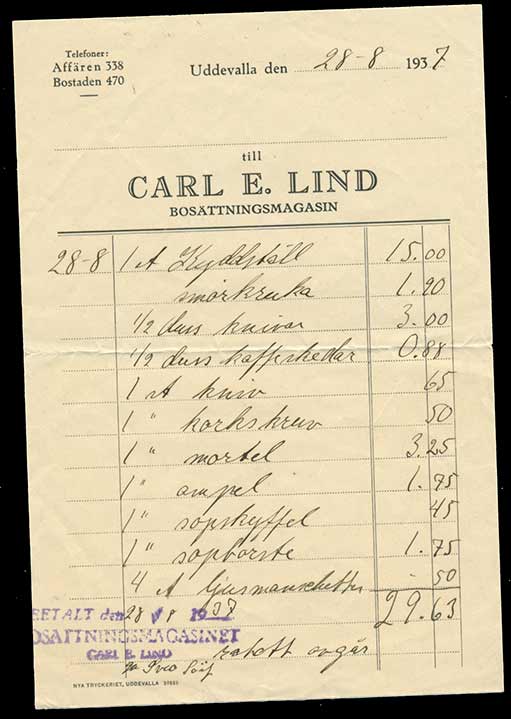 Telefoner:
Affären 338
Bostaden 470
Uddevalla den 28-8 1937
till
CARL E. LIND
BOSÄTTNINGSMAGASIN
28-8 1 st Kryddställ 15.00
smörkruka 1.90
1/2 duss knivar 3.00
1/2 duss kaffeskedar 0.88
1 st kniv 65
1 " korkskruv 50
1 " mortel 3.25
1 " ampel 1.75
1 " sopskyffel 45
1 " sopborste 1.75
4 st ljusmanschetter - 50
29.63
BETALT den 28/8 1937
OSÄTTNINGSMAGASINET
CARL E. LIND
rabatt avgår
NYA TRYCKERIET, UDDEVALLA